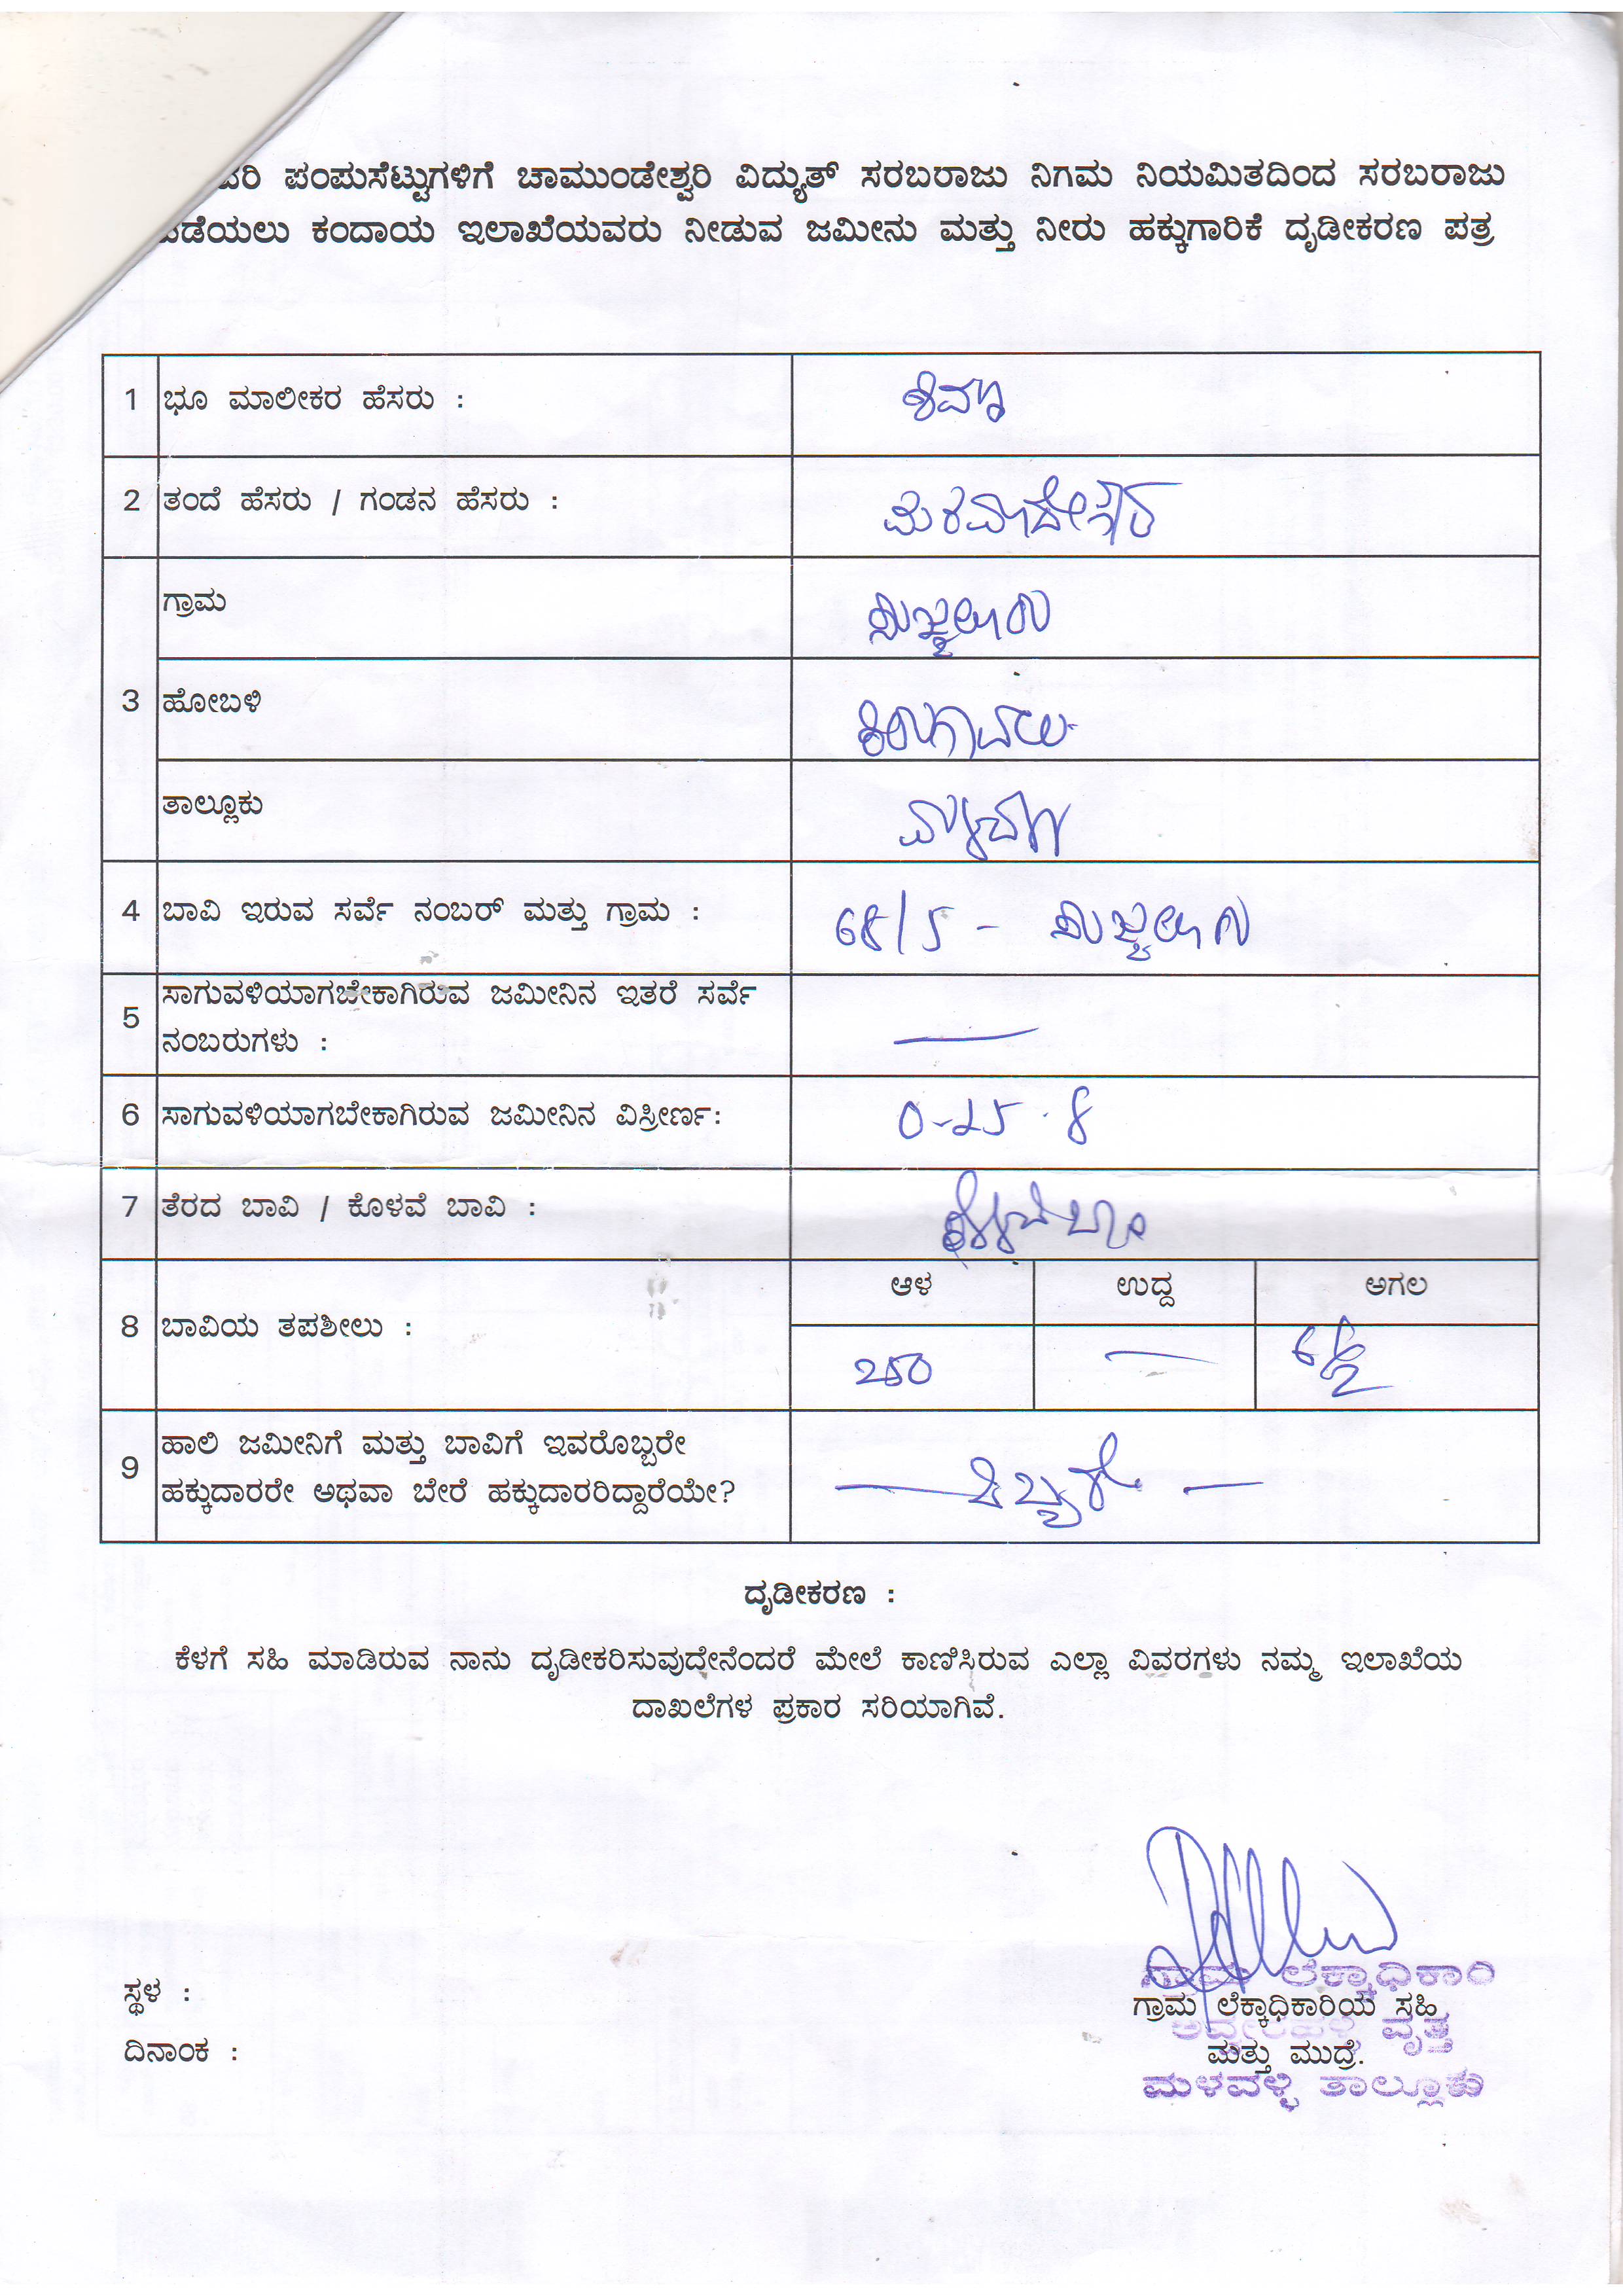 ಪಂಪುಸೆಟ್ಟುಗಳಿಗೆ ಚಾಮುಂಡೇಶ್ವರಿ ವಿದ್ಯುತ್ ಸರಬರಾಜು ನಿಗಮ ನಿಯಮಿತದಿಂದ ಸರಬರಾಜು
ಕಂದಾಯ ಇಲಾಖೆಯವರು ನೀಡುವ ಜಮೀನು ಮತ್ತು ನೀರು ಹಕ್ಕುಗಾರಿಕೆ ದೃಡೀಕರಣ ಪತ್ರ
1 ಭೂ ಮಾಲೀಕರ ಹೆಸರು :
2 ತಂದೆ ಹೆಸರು / ಗಂಡನ ಹೆಸರು :
ಗ್ರಾಮ
3 ಹೋಬಳಿ
ತಾಲ್ಲೂಕು
4 ಬಾವಿ ಇರುವ ಸರ್ವೆ ನಂಬರ್ ಮತ್ತು ಗ್ರಾಮ : 68/5 -
5 ಸಾಗುವಳಿಯಾಗಬೇಕಾಗಿರುವ ಜಮೀನಿನ ಇತರೆ ಸರ್ವೆ
ನಂಬರುಗಳು : —
6 ಸಾಗುವಳಿಯಾಗಬೇಕಾಗಿರುವ ಜಮೀನಿನ ವಿಸ್ರೀರ್ಣ: 0-25.8
7 ತೆರದ ಬಾವಿ / ಕೊಳವೆ ಬಾವಿ :
ಆಳ ಉದ್ದ ಅಗಲ
8 ಬಾವಿಯ ತಪಶೀಲು : 250 — 6½
9 ಹಾಲಿ ಜಮೀನಿಗೆ ಮತ್ತು ಬಾವಿಗೆ ಇವರೊಬ್ಬರೇ
ಹಕ್ಕುದಾರರೇ ಅಥವಾ ಬೇರೆ ಹಕ್ಕುದಾರರಿದ್ದಾರೆಯೇ?
ದೃಡೀಕರಣ :
ಕೆಳಗೆ ಸಹಿ ಮಾಡಿರುವ ನಾನು ದೃಡೀಕರಿಸುವುದೇನೆಂದರೆ ಮೇಲೆ ಕಾಣಿಸಿರುವ ಎಲ್ಲಾ ವಿವರಗಳು ನಮ್ಮ ಇಲಾಖೆಯ
ದಾಖಲೆಗಳ ಪ್ರಕಾರ ಸರಿಯಾಗಿವೆ.
ಗ್ರಾಮ ಲೆಕ್ಕಾಧಿಕಾರಿ
ಸ್ಥಳ :
ಗ್ರಾಮ ಲೆಕ್ಕಾಧಿಕಾರಿಯ ಸಹಿ
ವೃತ್ತ
ದಿನಾಂಕ :
ಮತ್ತು ಮುದ್ರೆ.
ಮಳವಳ್ಳಿ ತಾಲ್ಲೂಕು